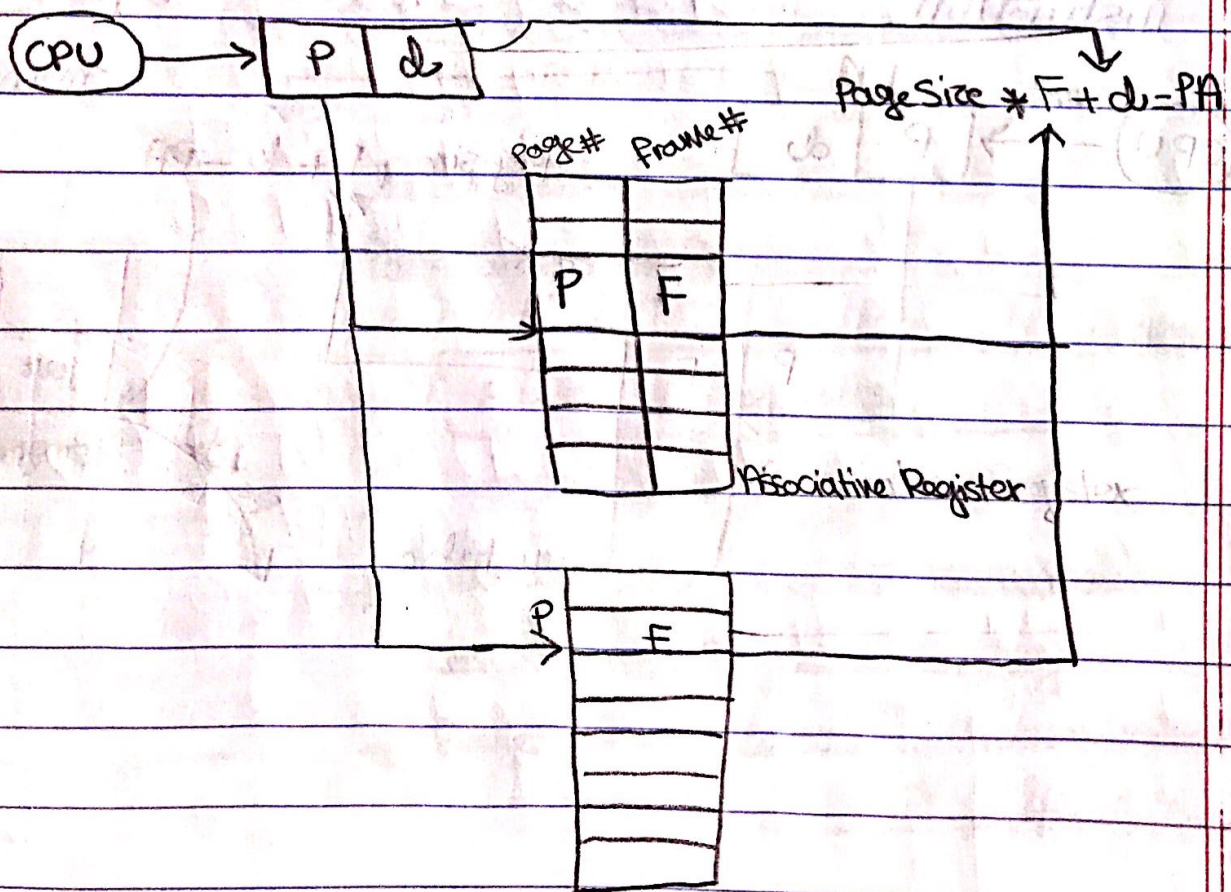 CPU
P d
PageSize * F + d = PA
page# frame#
P F
Associative Register
P
F